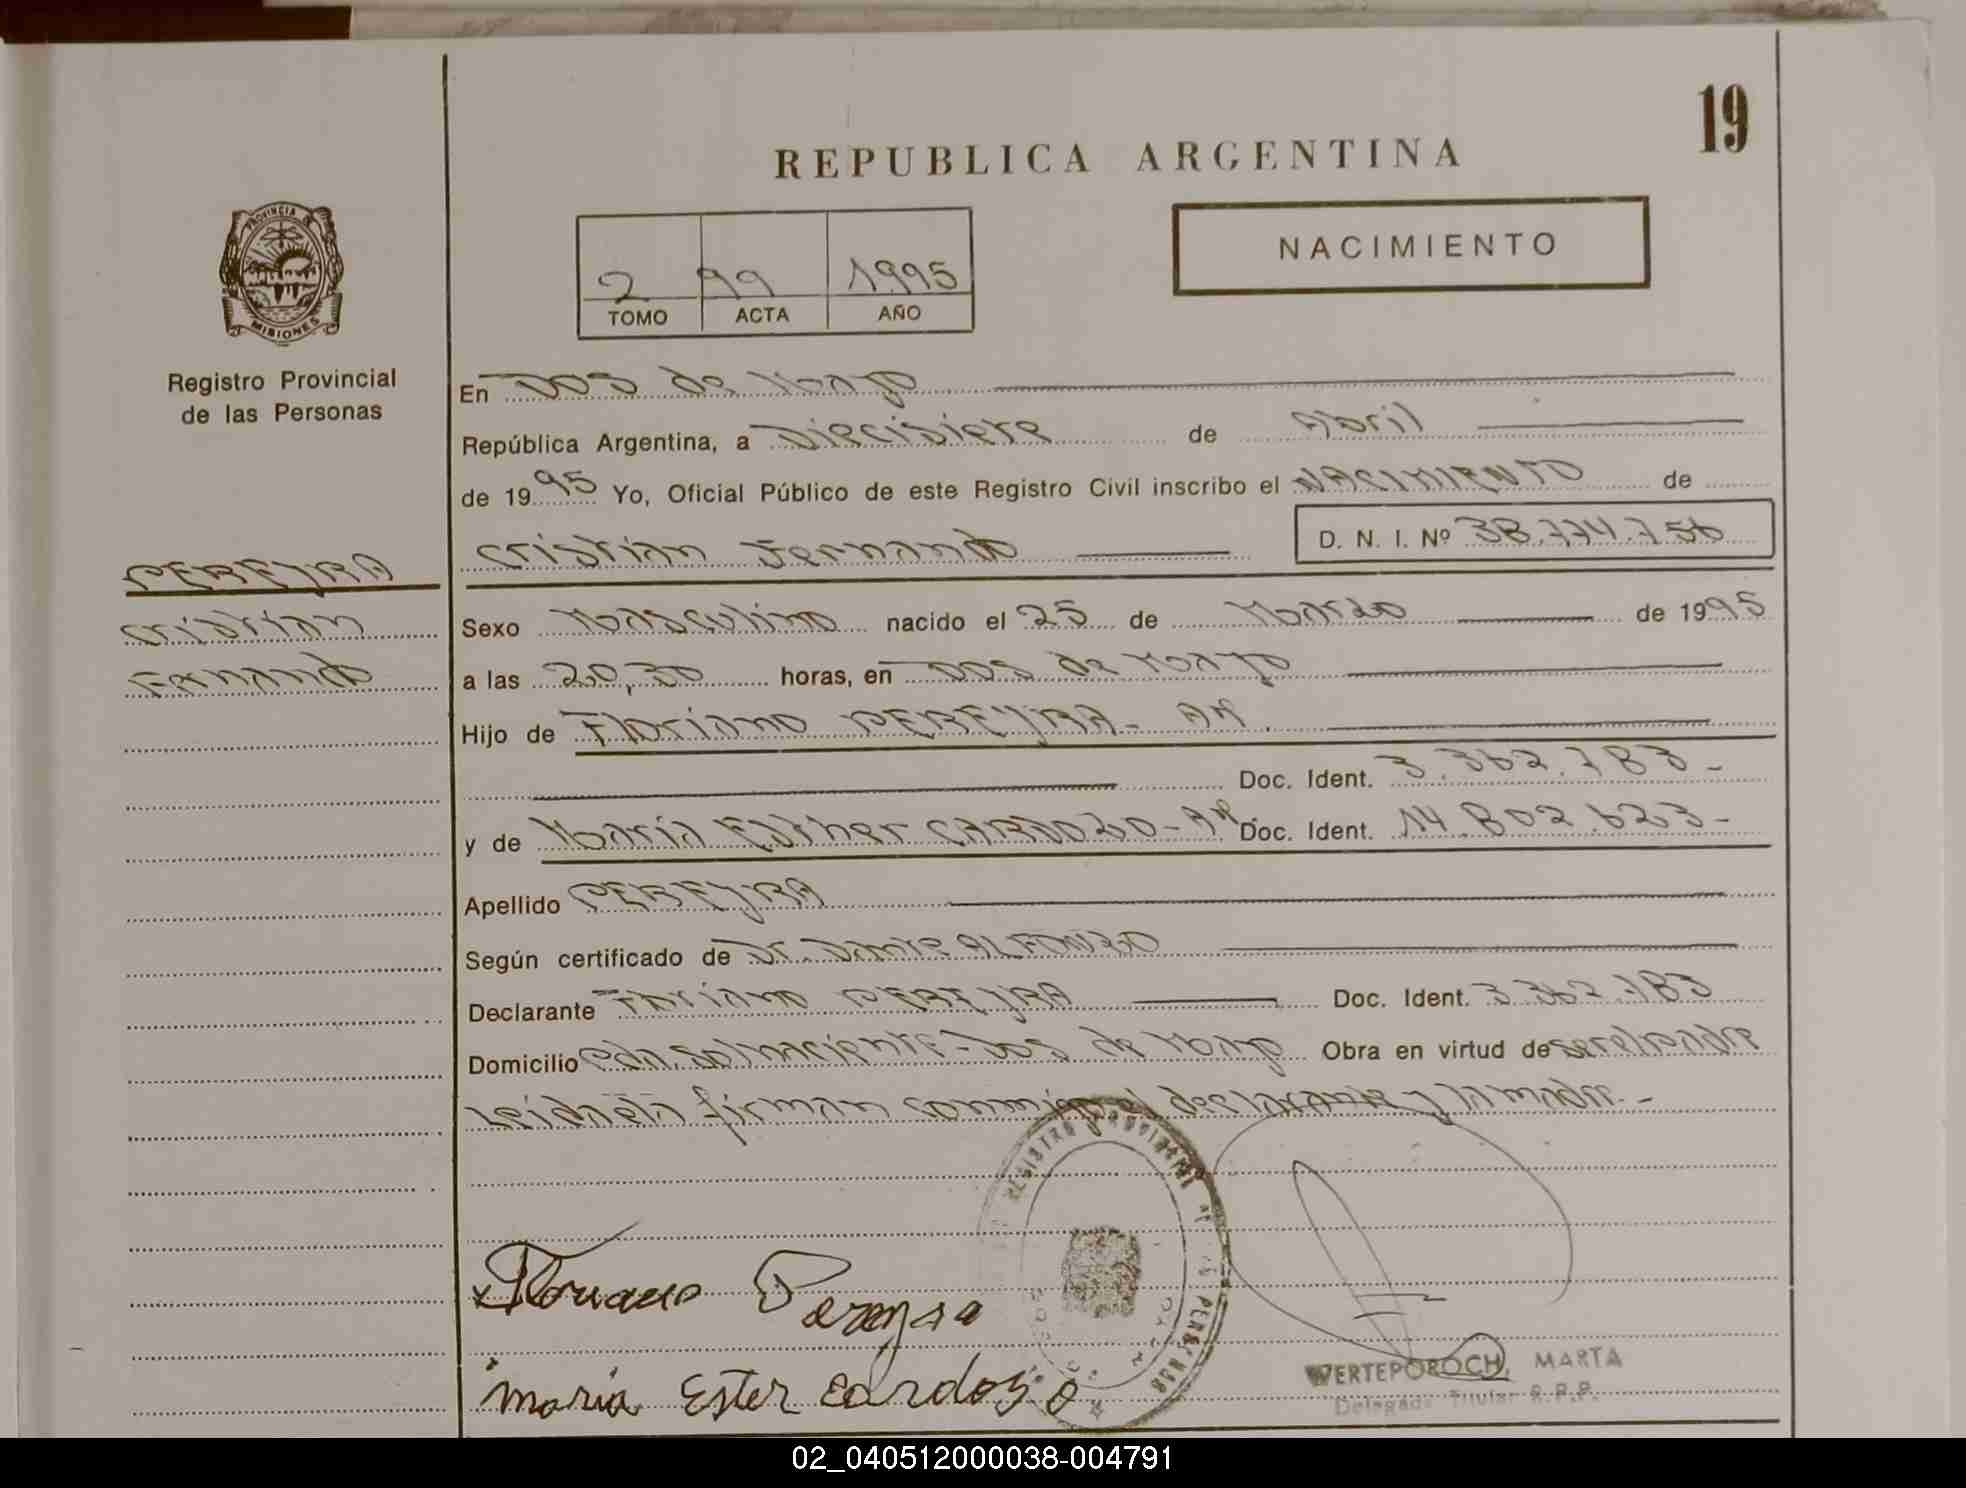 19
REPUBLICA ARGENTINA
NACIMIENTO
2 99 1995
TOMO ACTA AÑO
PROVINCIA DE
MISIONES
Registro Provincial
de las Personas
PEREYRA
Cristian
Fernando
En Dos de Mayo
República Argentina, a Diecisiete de Abril
de 1995 Yo, Oficial Público de este Registro Civil inscribo el NACIMIENTO de
Cristian Fernando D. N. I. Nº 38.774.756
Sexo Masculino nacido el 25 de Marzo de 1995
a las 20,30 horas, en Dos de Mayo
Hijo de Floriano PEREYRA - AR.
Doc. Ident. 3.362.783-
y de Maria Esther CARDOZO - AR. Doc. Ident. 14.802.623-
Apellido PEREYRA
Según certificado de Dr. Dante ALFONZO
Declarante Floriano PEREYRA Doc. Ident. 3.362.783
Domicilio Pda. Salnaciente - Dos de Mayo Obra en virtud de ser el padre
Leida el acta firman conmigo el declarante y la madre.-
REGISTRO PROVINCIAL DE LAS PERSONAS
Floriano Pereyra
maria Ester Cardozo
WERTEPOROCH, MARTA
Delegada Titular R.P.P.
02_040512000038-004791